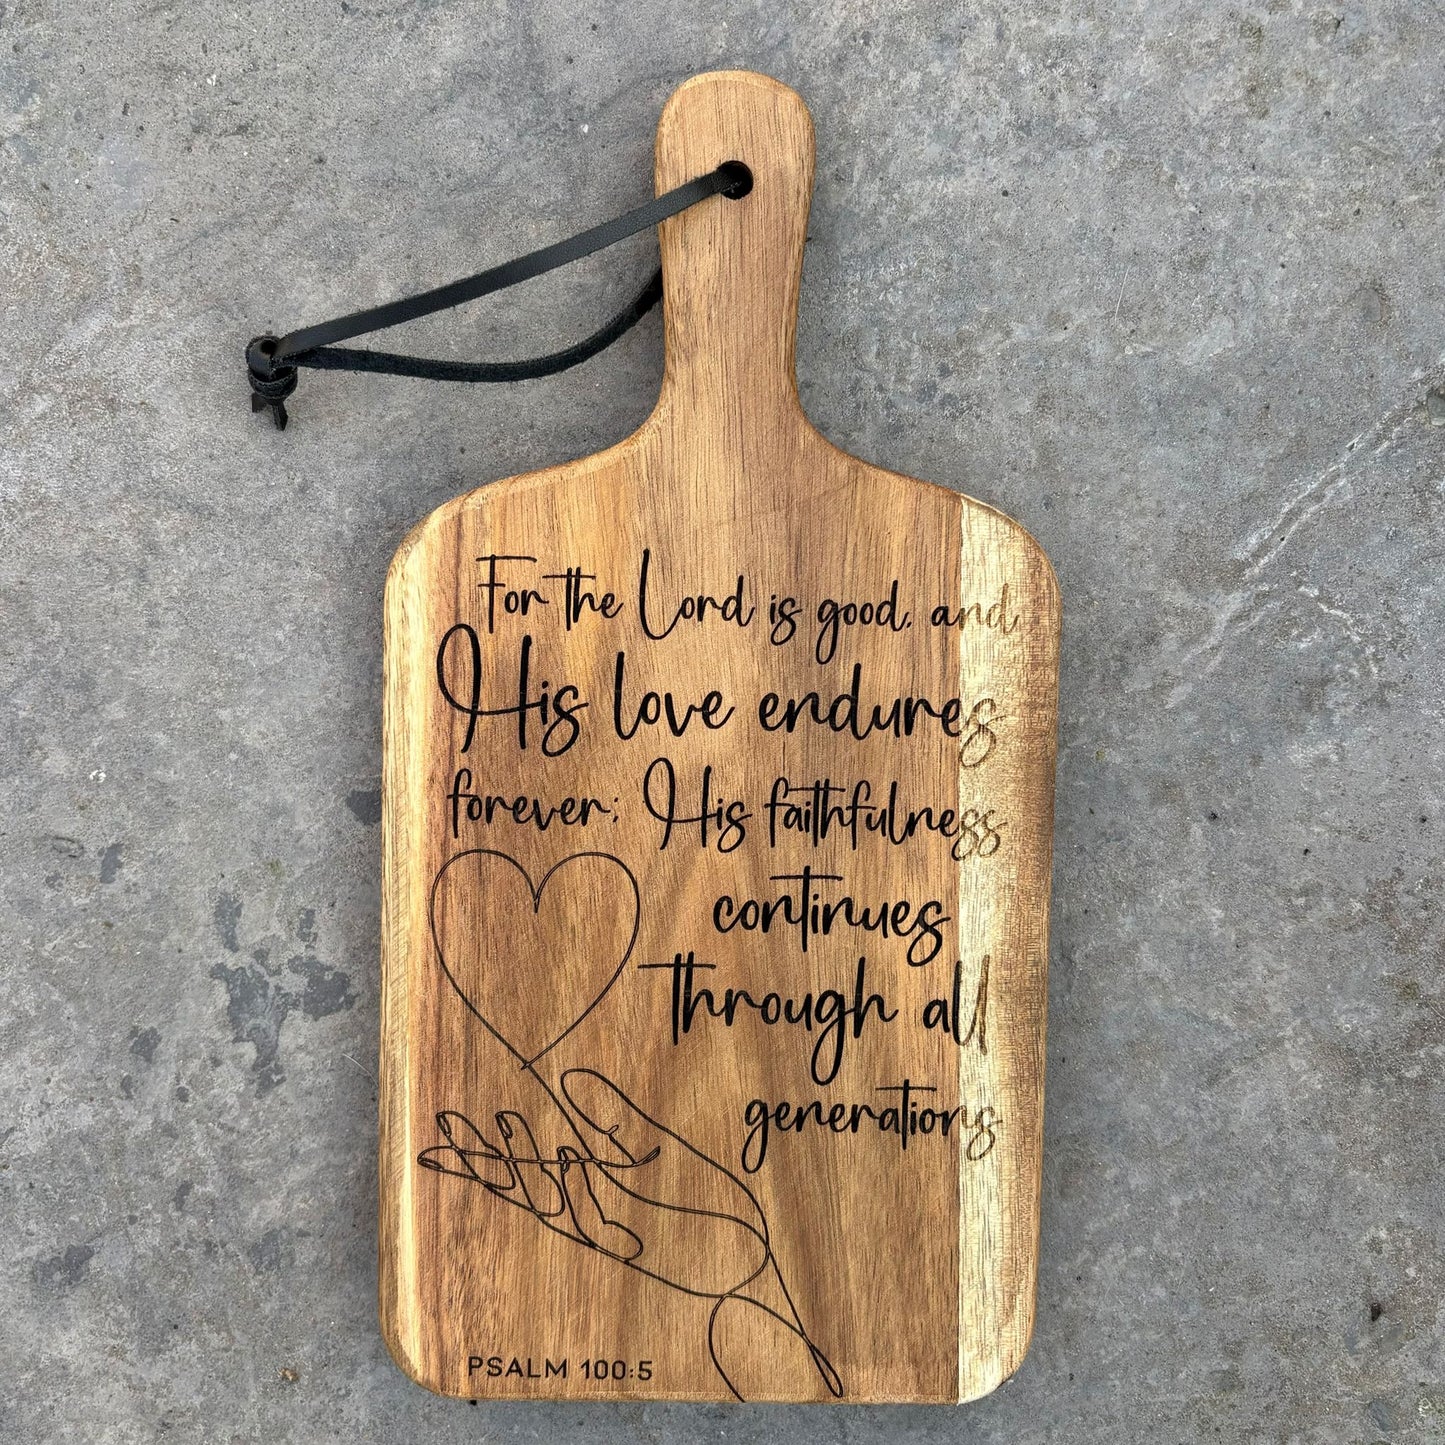 For the Lord is good, and
His love endures
forever; His faithfulness
continues
through all
generations
PSALM 100:5